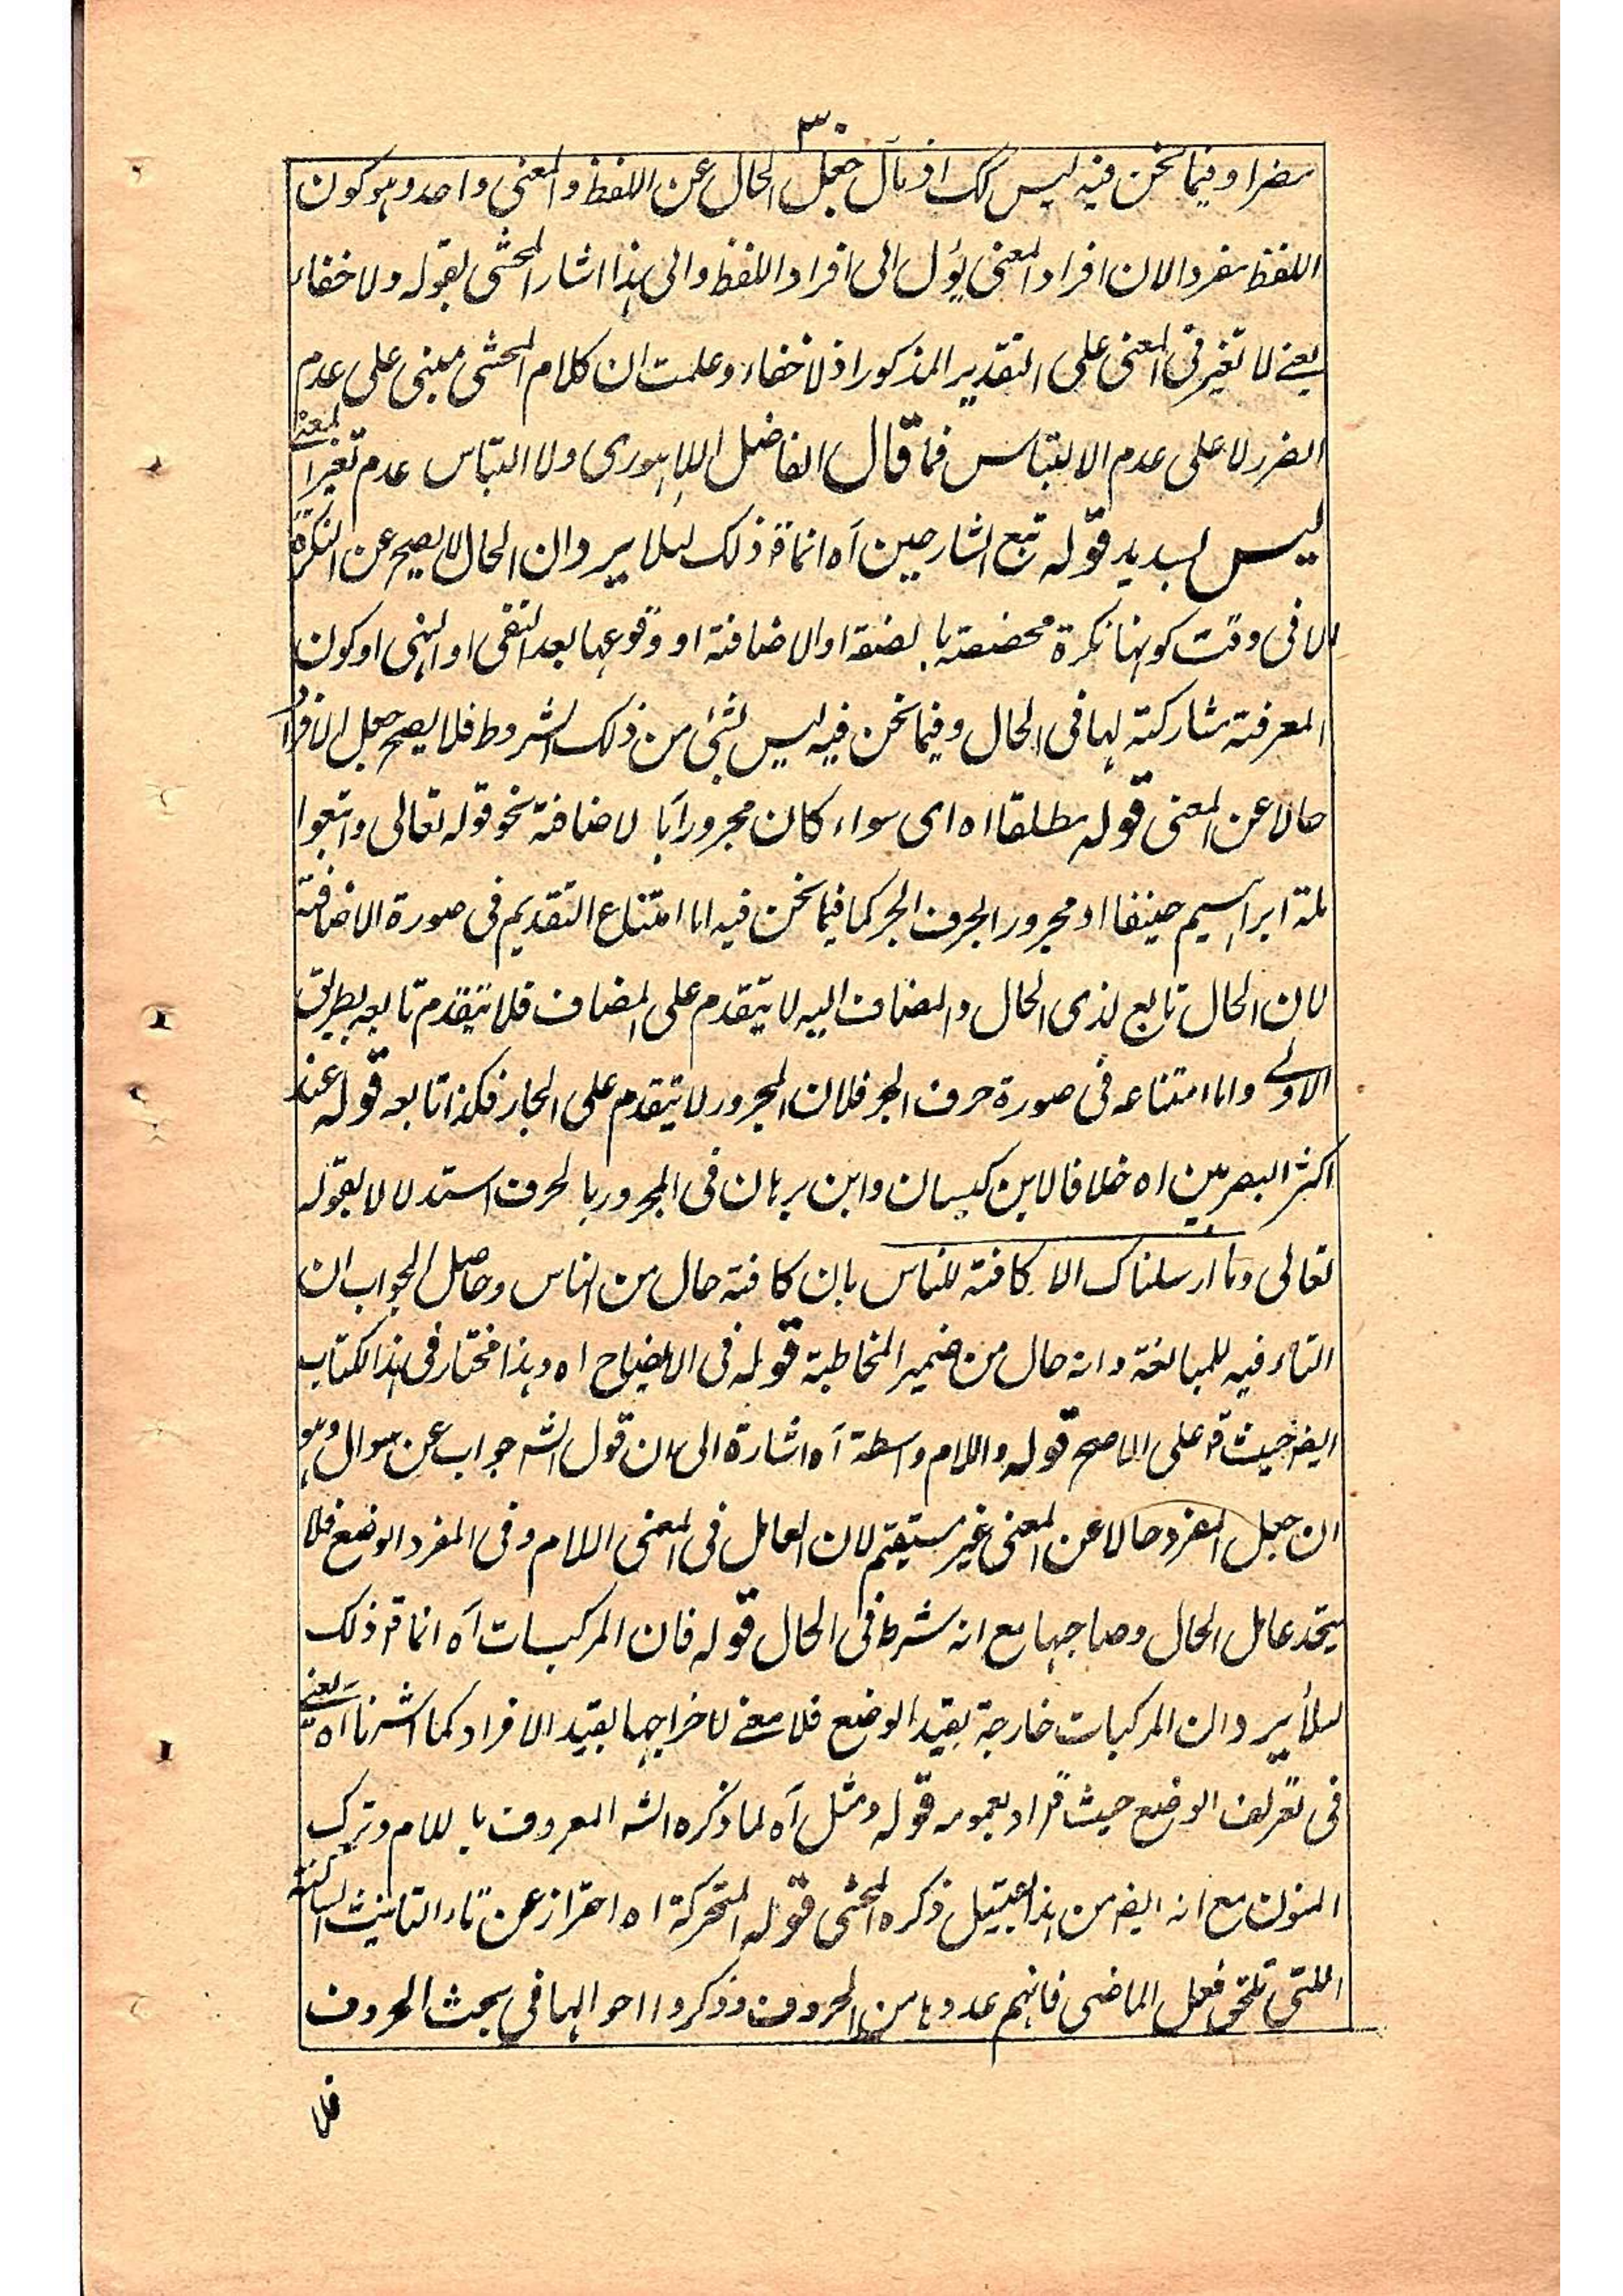 ٣٠
مضرا وفيما نحن فيه ليس كك اذ مآل جعل الحال عن اللفظ والمعنى واحد وهو كون
اللفظ مفردا لان افراد المعنى يؤل الى افراد اللفظ والى هذا اشار المحشى بقوله ولا خفاء
يعنے لا تغير فى المعنى على التقدير المذكور اذ لا خفاء وعلمت ان كلام المحشى مبنى على عدم
الضرر لا على عدم الالتباس فما قال الفاضل اللاهورى ولا التباس عدم تغير المعنے
ليس بسديد قوله تبع الشارحين آه انما قو ذلك لئلا يرد ان الحال لا يصح عن النكرة
الا فى وقت كونها نكرة مخصصة بالصفة او الاضافة او وقوعها بعد النفى او النهى او كون
المعرفة مشاركة لها فى الحال وفيما نحن فيه ليس شئ من ذلك الشروط فلا يصح جعل الافراد
حالا عن المعنى قوله مطلقا اه اى سواء كان مجرورا بالاضافة نحو قوله تعالى واتبعوا
ملة ابراهيم حنيفا او مجرورا بحرف الجر كما فيما نحن فيه اما امتناع التقديم فى صورة الاضافة
لان الحال تابع لذى الحال والمضاف اليه لا يتقدم على المضاف فلا يتقدم تابعه بطريق
الاولے واما امتناعه فى صورة حرف الجر فلان المجرور لا يتقدم على الجار فكذا تابعه قوله عند
اكثر البصريين اه خلافا لابن كيسان وابن برهان فى المجرور بالحرف استدلالا بقوله
تعالى وما ارسلناك الا كافة للناس بان كافة حال من الناس وحاصل الجواب ان
التاء فيه للمبالغة وانه حال من ضمير المخاطبة قوله فى الايضاح اه وهذا مختار فى هذا الكتاب
ايضر حيث قو على الاصح قوله واللام واسطة آه اشارة الى ان قول الشه جواب عن سوال وهو
ان جعل المفرد حالا عن المعنى غير مستقيم لان العامل فى المعنى اللام وفى المفرد الوضع فلا
يتحد عامل الحال وصاحبها مع انه شرط فى الحال قوله فان المركبات آه انما قو ذلك
لئلا يرد ان المركبات خارجة بقيد الوضع فلا معنے لاخراجها بقيد الافراد كما اشرنا اه يعنے
فى تعريف الوضع حيث قو اد بعمومه قوله ومثل آه لما ذكره الشه المعروف باللام وترك
المنون مع انه ايضر من هذا القبيل ذكره المحشى قوله المتحركة اه احتراز عن تاء التانيث الساكنة
اللتى تلحق فعل الماضى فانهم عدوها من الحروف وذكروا احوالها فى بحث الحروف
فلا